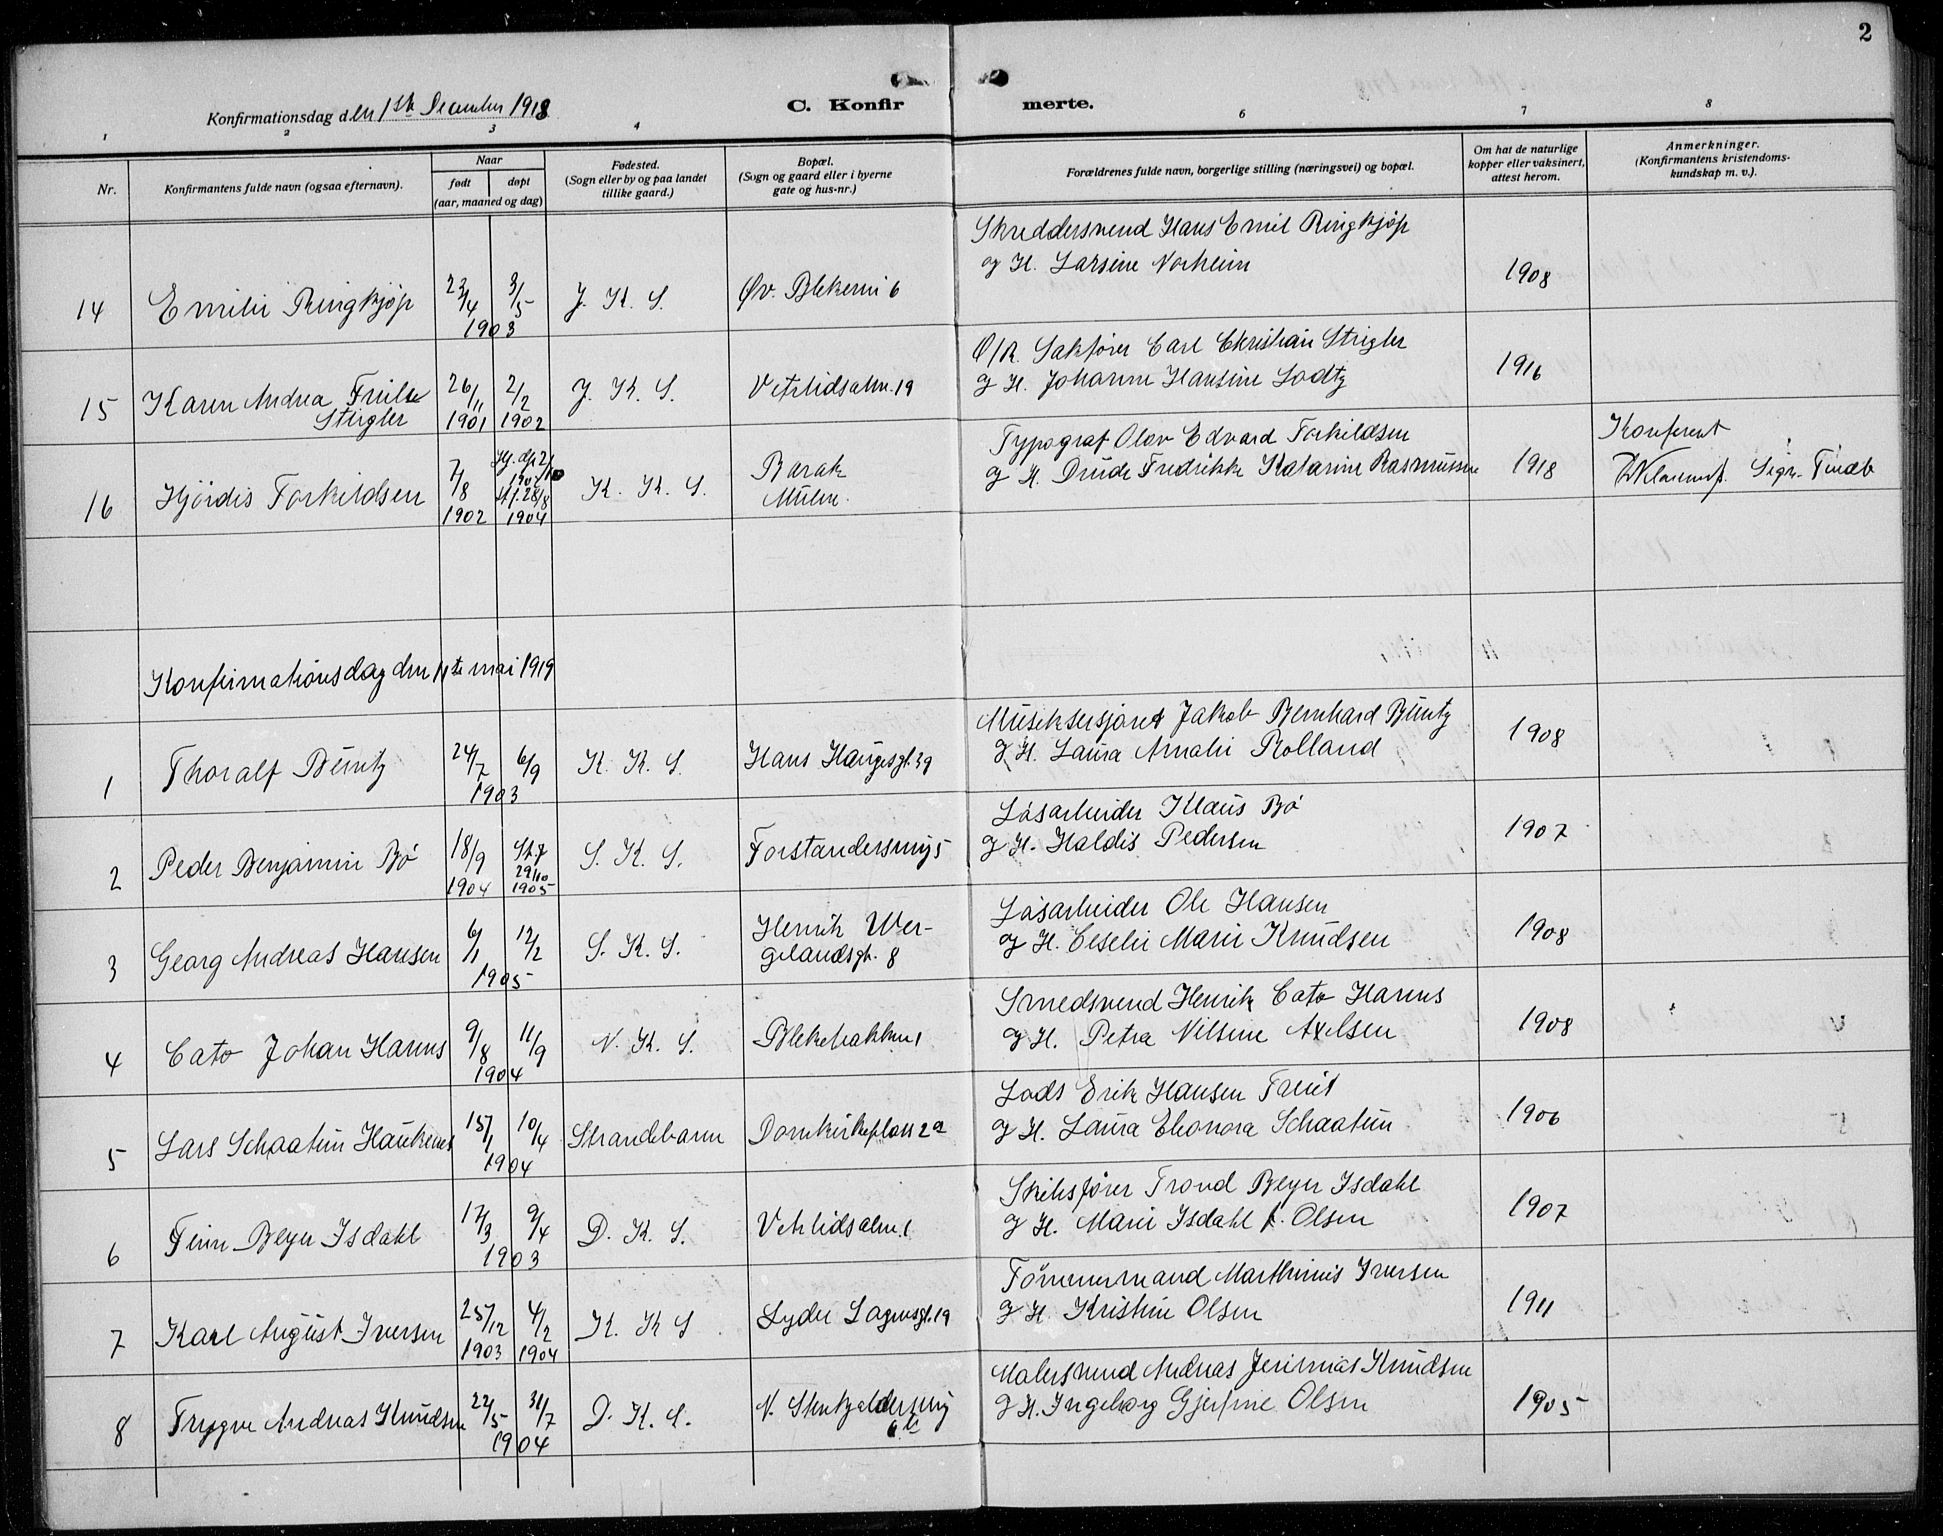 2
Konfirmationsdag den 1ste December 1918
C. Konfirmerte.
1 2 3 4 6 7 8
Nr.
Konfirmantens fulde navn (ogsaa efternavn).
Naar
født døpt
(aar, maaned og dag)
Fødested.
(Sogn eller by og paa landet
tillike gaard.)
Bopæl.
(Sogn og gaard eller i byerne
gate og hus-nr.)
Forældrenes fulde navn, borgerlige stilling (næringsvei) og bopæl.
Om hat de naturlige
kopper eller vaksinert,
attest herom.
Anmerkninger.
(Konfirmantens kristendoms-
kundskap m. v.).
14 Emilie Ringkjøp 23/4 3/5 1903 J. K. S. Øv. Blekevei 6
Skreddersvend Hans Emil Ringkjøp
og H. Larsine Norheim
1908
15 Karen Andrea Friele
Strigler
26/11 1901 2/2 1902 J. K. S. Vetrlidsalm. 19
O/R. Sakfører Carl Christian Strigler
og H. Johanne Hansine Lodtz
1916
16 Hjørdis Torkildsen 7/8 1902
Hj. dp 2/10
1902
st. f. 28/8
1904
K. K. S.
Barak
Mulen.
Typograf Olav Edvard Torkildsen
og H. Drude Fredrikke Katarine Rasmussen
1918
Konferert
Sign.
Konfirmationsdag den 11te mai 1919
1 Thoralf Büntz 24/7 6/9 1903 K. K. S. Hans Haugesgt. 39
Musiksersjant Jakob Bernhard Büntz
og H. Laura Amalie Rolland
1908
2 Peder Benjamin Bö 18/9 1904 St. f 29/10 1905 S. K. S. Forstandersmug 5
Løsarbeider Klaus Bö
og H. Haldis Pedersen
1907
3 Georg Andreas Hansen 6/1 12/2 1905 S. K. S.
Henrik Wer-
gelandsgt. 8
Løsarbeider Ole Hansen
og H. Ceselie Marie Knudsen
1908
4 Cato Johan Harms 9/8 11/9 1904 N. K. S. Blekebakken 1
Smedsvend Henrik Cato Harms
og H. Petra Nilsine Axelsen
1908
5 Lars Schaatun Haukenes 15/1 10/4 1904 Strandebarm Domkirkeplass 2a
Lods Erik Hansen
og H. Laura Elionora Schaatun
1906
6 Finn Beyer Isdahl 17/3 9/4 1903 D. K. S. Vetrlidsalm. 1
Skibsfører Trond Beyer Isdahl
og H. Marie Isdahl f. Olsen
1907
7 Karl August Iversen 25/12 1903 4/2 1904 K. K S. Lyder Sagensgt. 19
Tømmermand Marthinius Iversen
og H. Kristine Olsen
1911
8 Trygve Andreas Knudsen 22/5 31/7 1904 D. K. S. N. Stenkjeldersmug
6 b
Malersvend Andreas Jerimias Knudsen
og H. Ingeborg Gjertine Olsen
1905